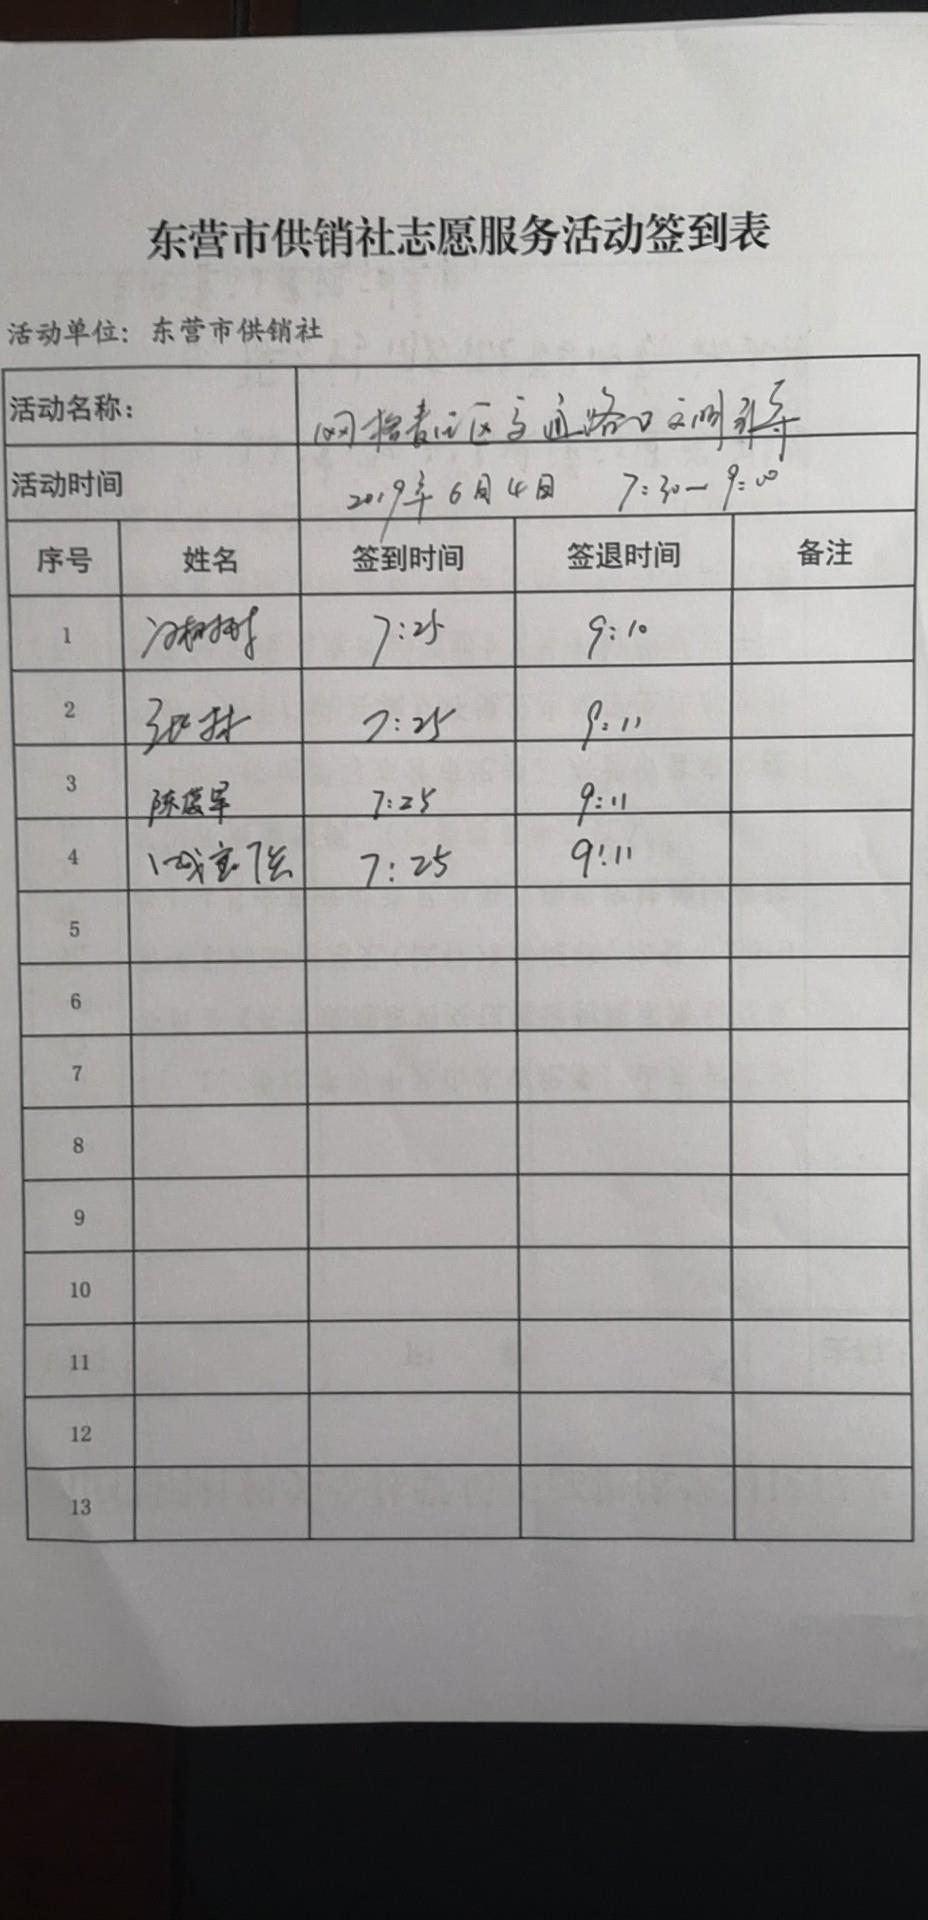 东营市供销社志愿服务活动签到表
活动单位：东营市供销社
活动名称： 网格责任区交通路口文明引导
活动时间 2019年6月4日 7:30—9:00
序号 姓名 签到时间 签退时间 备注
1 7:25 9:10
2 7:25 9:11
3 陈俊军 7:25 9:11
4 7:25 9:11
5
6
7
8
9
10
11
12
13